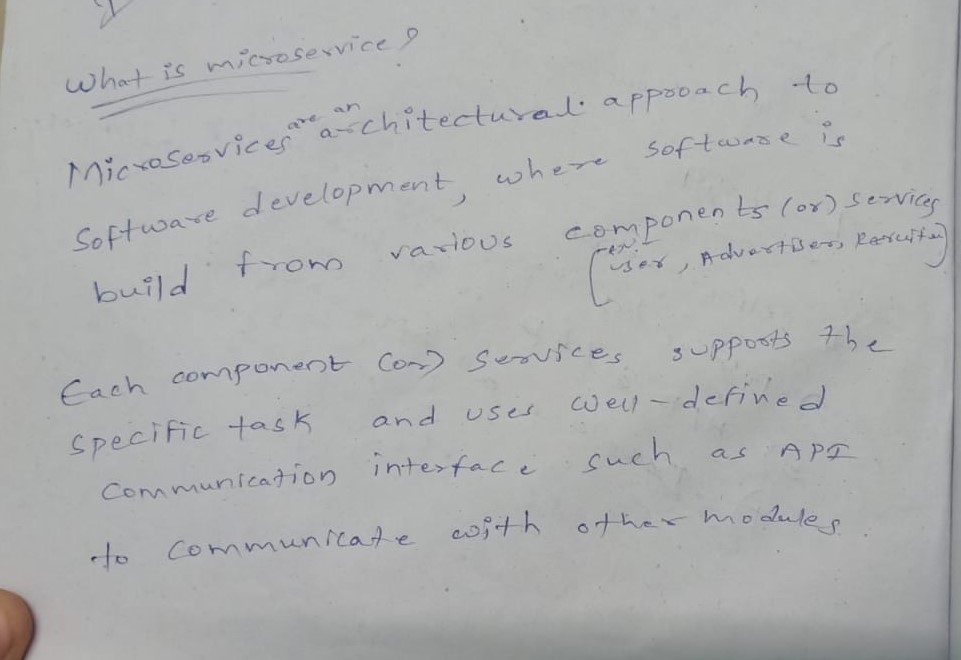 What is microservice?
Microservices are an architectural approach to
Software development, where software is
build from various components (or) services
[ex:- user, Advertiser, Recruiter]
Each component (or) services supports the
specific task and uses well-defined
communication interface such as API
to communicate with other modules.